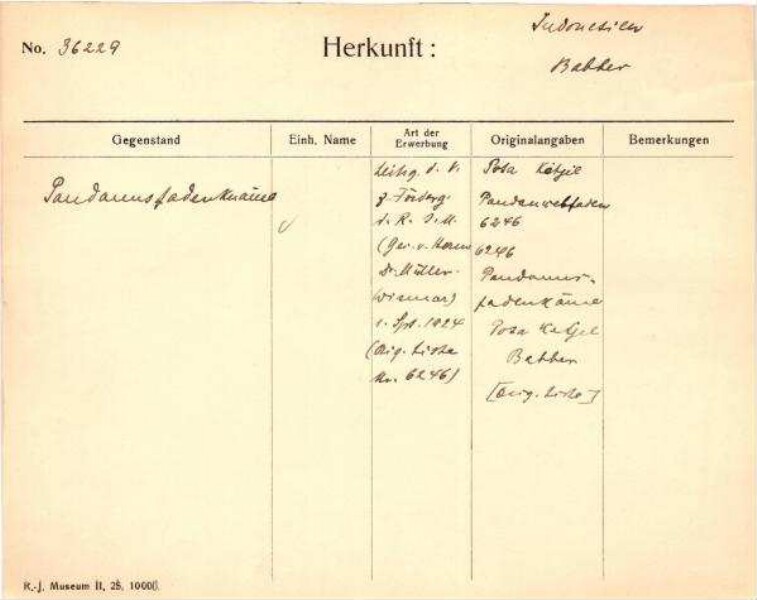 Indonesien
No. 36229 Herkunft:
Babber
Gegenstand Einh. Name Art der Erwerbung Originalangaben Bemerkungen
Pandanusfadenknäue
Leihg. d. V.
z. Förderg.
d. R. J. M.
(Ges. v. Herrn
Dr. Müller-
Wismar)
s. Spt. 1924
(Orig. Liste
Nr. 6246)
Posa Ketjil
Pandanwebfaden
6246
6246
Pandanus-
fadenkäme
Posa Ketjel
Babber
[Orig. Liste]
R.-J. Museum II, 25, 10000.